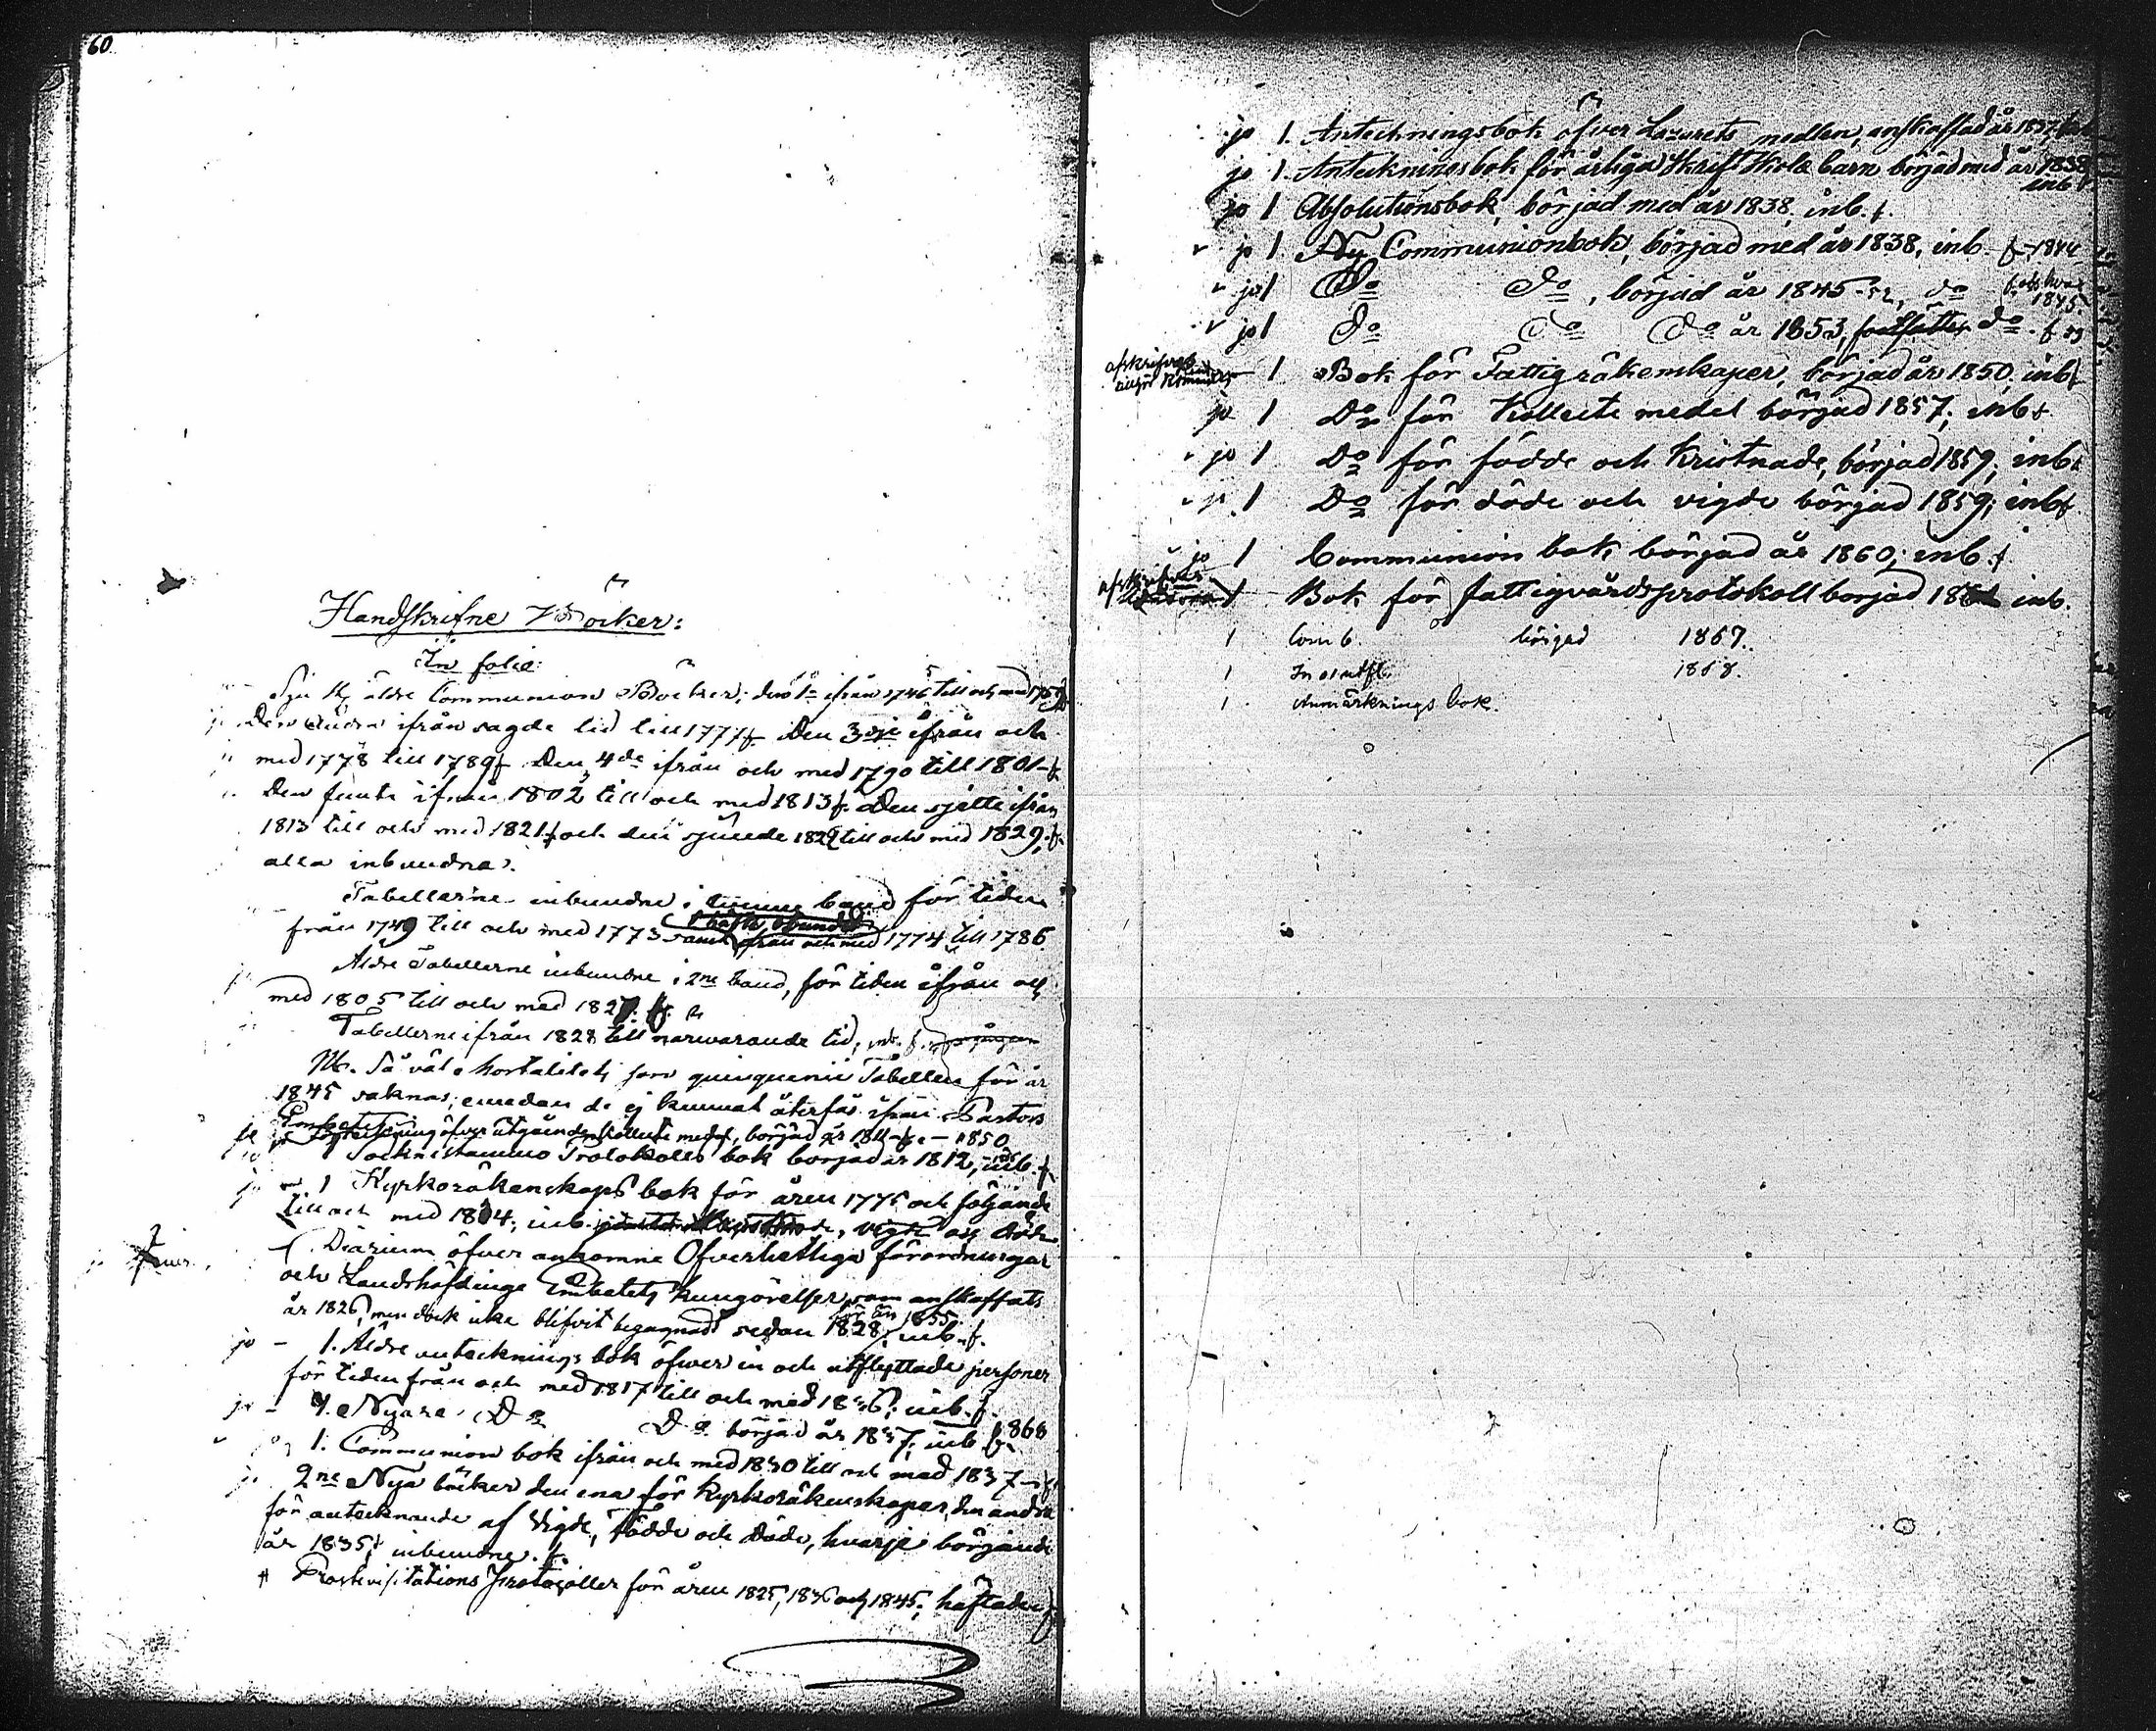 60
Handskrifne Böcker:
In folio:
Sju st. äldre Communion Böcker; den 1a ifrån 1746 till och med
Den andra ifrån sagde tid till 1777 f. Den 3dje ifrån och
med 1778 till 1789 f. Den 4de ifrån och med 1790 till 1801 - f.
Den femte ifrån 1802 till och med 1813 f. Den sjette ifrån
1813 till och med 1821 f och den sjunde 1822 till och med 1829, f.
alla inbundna.
Tabellerne inbundne i band för tiden
från 1749 till och med 1773 samt ifrån och med 1774 till 1786
Äldre Tabellerne inbundne i 2ne band, för tiden ifrån och
med 1805 till och med 1827. f.
Tabellerne ifrån 1828 till narwarande tid, inb. f.
Nb. Så väl Mortalitets som quinquenii Tabellen för år
1845 saknas, emedan de ej kunnat återfås ifrån Pastors
Embetet
jo Förteckning öfver utgående kollect medel, börjad år 1811 - f. - 1850
Socknestämmo Protokolls bok börjad år 1812, inb. f.
jo - 1 Kyrkoräkenskaps bok för åren 1775 och följande
till och med 1804, inb. vigde och döde
Diarium öfver ankomne Ofverhetliga förordningar
och Landshöfdinge Embetets kungörelser, som anskaffats
år 1826, men dock icke blifvit begagnadt sedan 1828 inb. f.
för än 1855
jo - 1. Äldre antecknings bok öfwer in och utflyttade personer
för tiden från och med 1817 till och med 1836; inb. f.
jo - 1. Nyare Do Do börjad år 1837, inb f. 1868
1. Communion bok ifrån och med 1830 till och med 1837 - f.
jo 2ne Nya böcker den ena för Kyrkoräkenskaper, den andra
för antecknande af Vigde, Födde och Döde, hvarje började
år 1835, inbundne. f.
Prostvisitations Protocoller för åren 1825, 1836 och 1845, häftade f.
jo 1. Anteckningsbok öfver Lazarets medlen, anskaffad år 1837
jo 1. Anteckningsbok för årliga Skrift Skole barn börjad med år 1838
inb f
jo 1 Absolutionsbok, börjad med år 1838. inb. f.
v jo 1 Ny Communionbok, börjad med år 1838, inb. f - 1844
v jo 1 Do Do, börjad år 1845-52, do
1845
v jo 1 Do Do Do år 1853, do. f
1 Bok för Fattigräkenskaper, börjad år 1850; inb f
jo 1 Do för Kollecte medel börjad 1857, inb f.
v jo 1 Do för födde och Kristnade, börjad 1859; inb f
v jo 1 Do för döde och vigde börjad 1859; inb f.
jo 1 Communion bok, börjad år 1860; inb. f
1 Bok för fattigvårdsprotokoll borjad inb.
1 Com b. börjad 1867.
1 In o utfl. 1868.
1 Anmärknings bok.